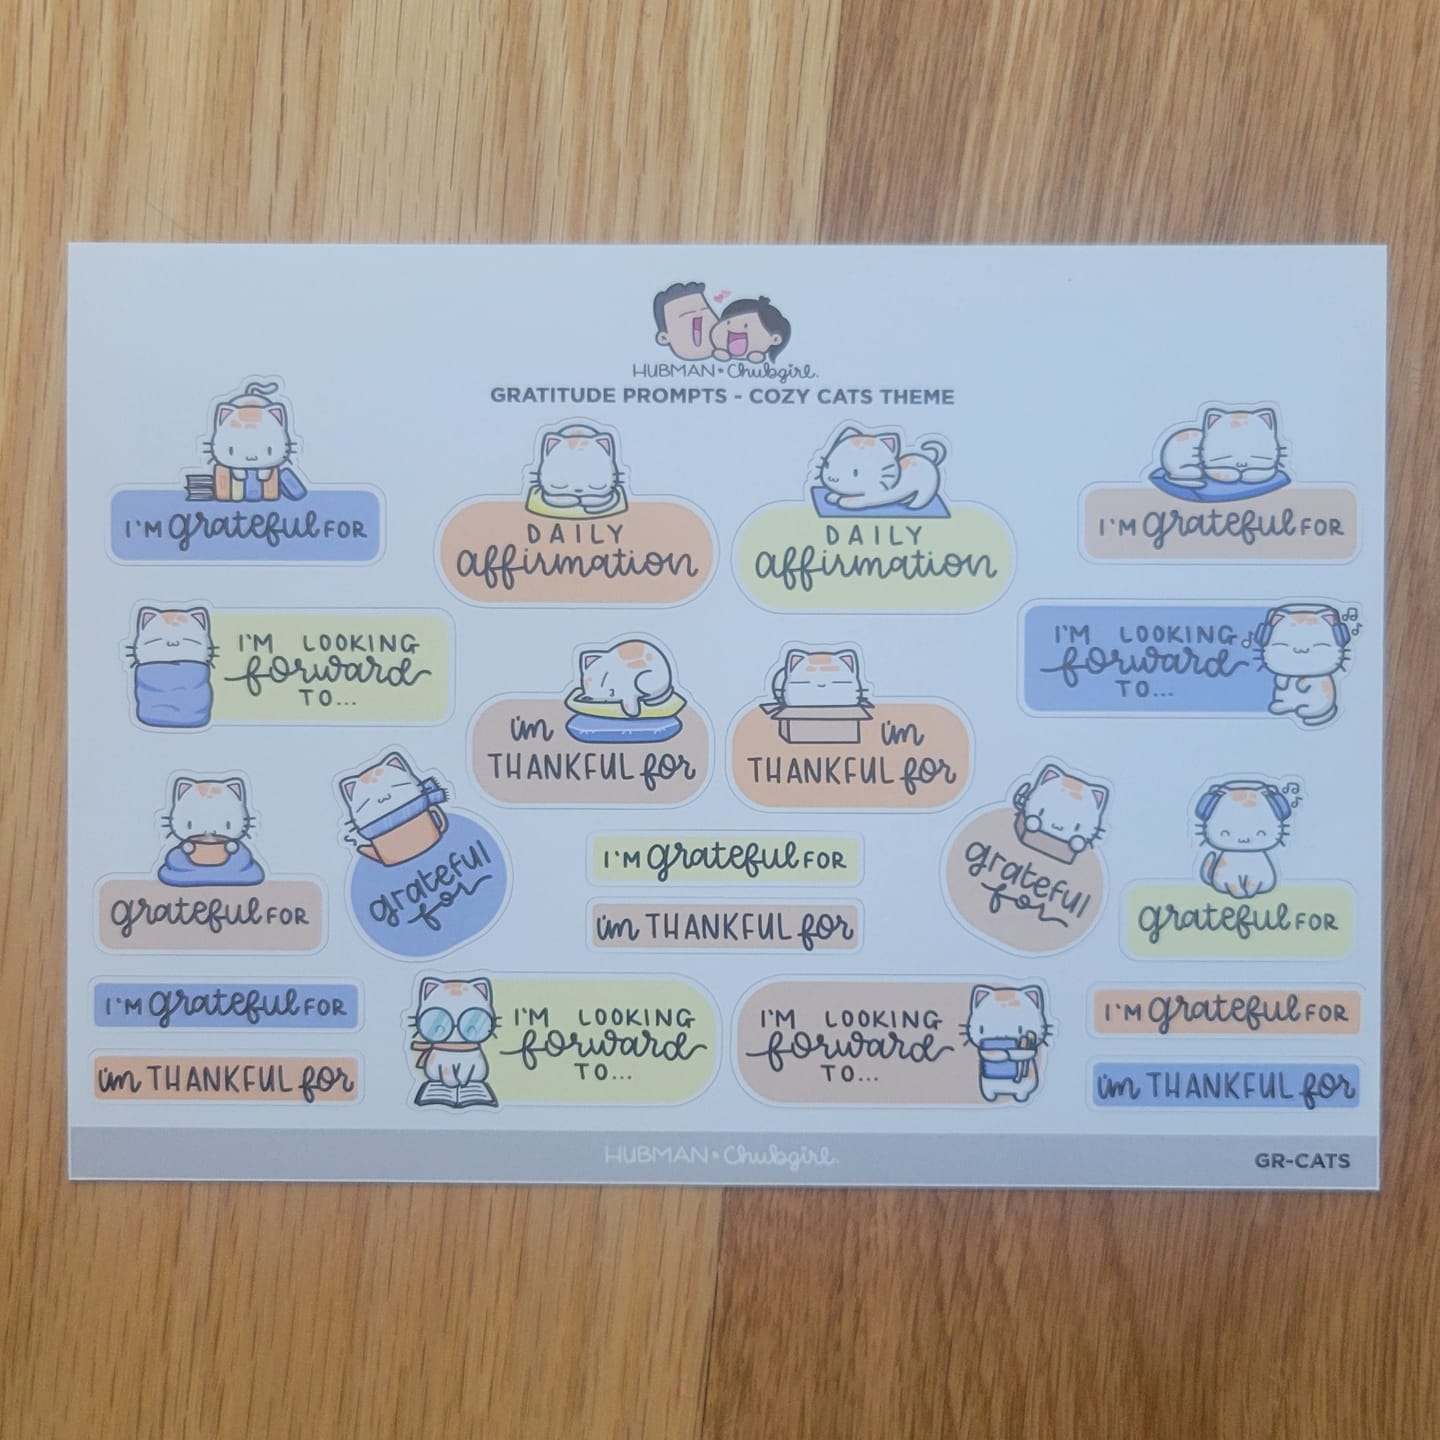 HUBMAN • Chubgirl.
GRATITUDE PROMPTS - COZY CATS THEME
I'M grateful FOR
DAILY
affirmation
DAILY
affirmation
I'M grateful FOR
I'M LOOKING
forward
TO...
i'm
THANKFUL for
i'm
THANKFUL for
I'M LOOKING
forward
TO...
grateful FOR
grateful
for
I'M grateful FOR
i'm THANKFUL for
grateful
for
grateful FOR
I'M grateful FOR
i'm THANKFUL for
I'M LOOKING
forward
TO...
I'M LOOKING
forward
TO...
I'M grateful FOR
i'm THANKFUL for
HUBMAN • Chubgirl.
GR-CATS